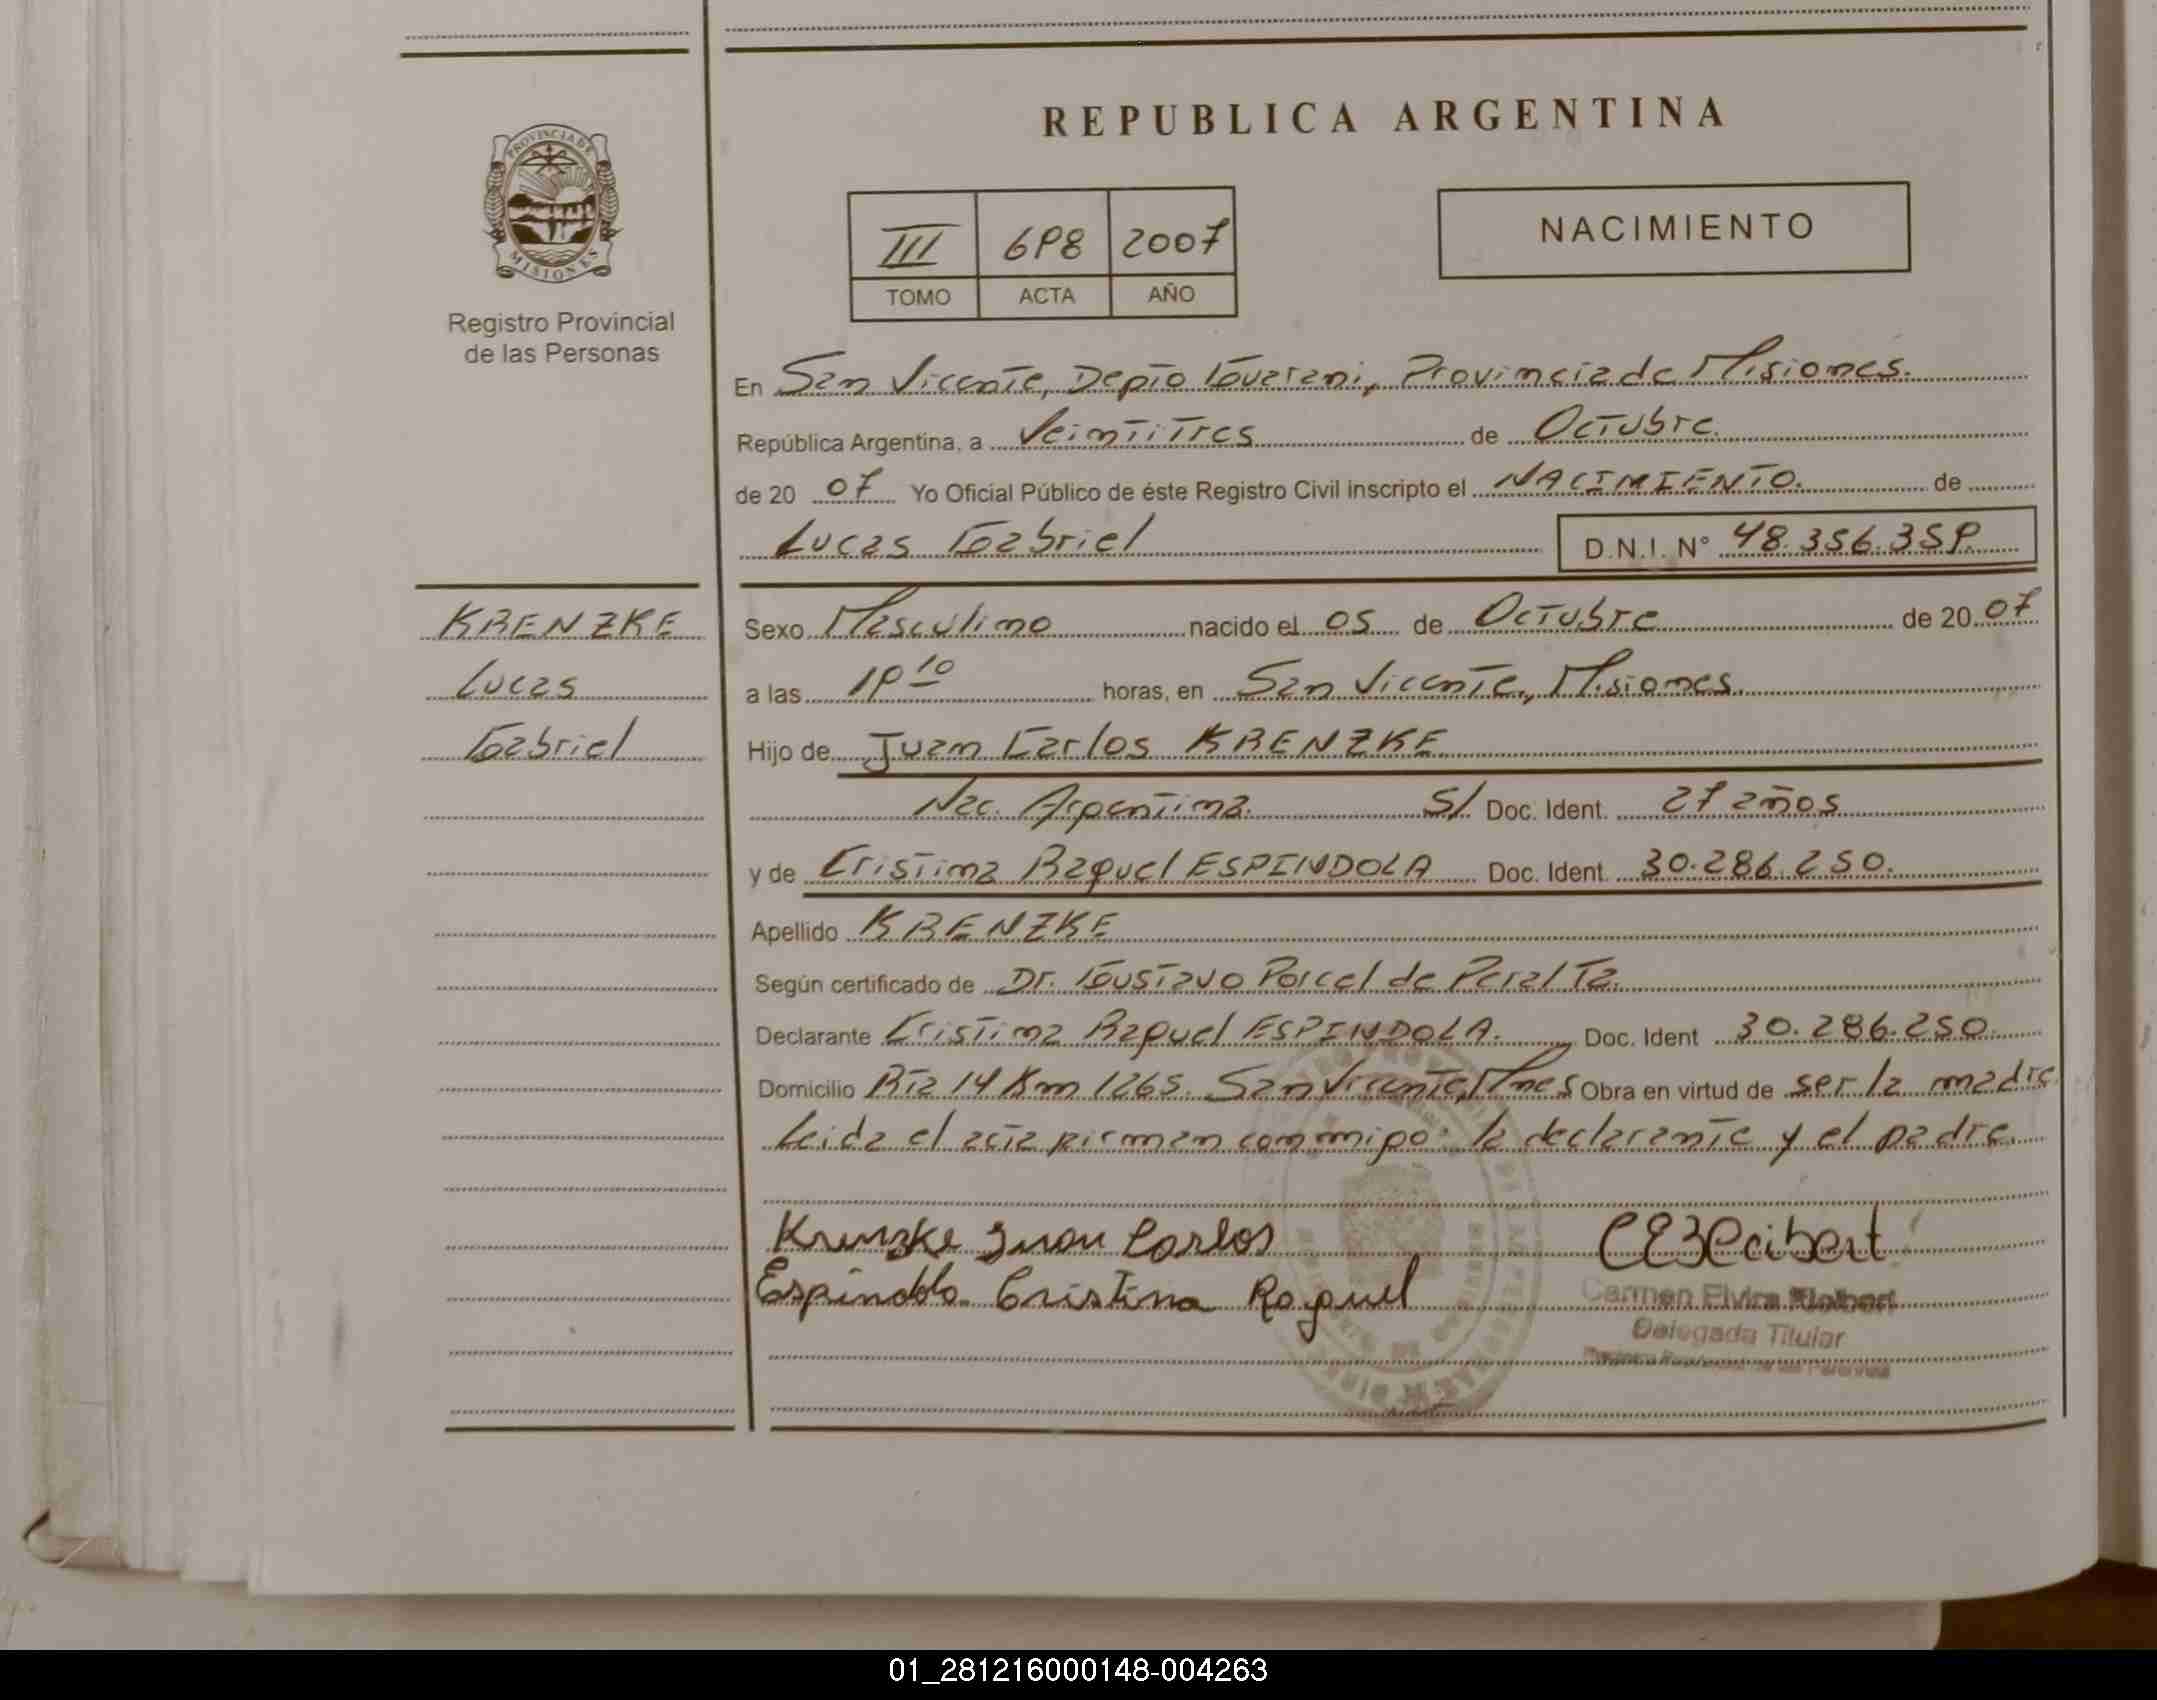 REPUBLICA ARGENTINA
PROVINCIA DE
MISIONES
Registro Provincial
de las Personas
III 698 2007
TOMO ACTA AÑO
NACIMIENTO
En San Vicente, Depto Guarani, Provincia de Misiones.
República Argentina, a Veintitres de Octubre.
de 20 07 Yo Oficial Público de éste Registro Civil inscripto el NACIMIENTO. de
Lucas Gabriel D.N.I. N° 48.356.359
KRENZKE
Lucas
Gabriel
Sexo Masculino nacido el 05 de Octubre de 20 07
a las 19 10 horas, en San Vicente, Misiones.
Hijo de Juan Carlos KRENZKE
Nac. Argentina. S/ Doc. Ident. 27 años
y de Cristina Raquel ESPINDOLA Doc. Ident. 30.286.250.
Apellido KRENZKE
Según certificado de Dr. Gustavo Porcel de Peralta.
Declarante Cristina Raquel ESPINDOLA. Doc. Ident 30.286.250.
Domicilio Rta 14 Km 1265. San Vicente, Mnes Obra en virtud de ser la madre
Leida el acta firman conmigo: la declarante y el padre.
Krenzke Juan Carlos
Espindola Cristina Raquel
Carmen Elvira
Delegada Titular
01_281216000148-004263